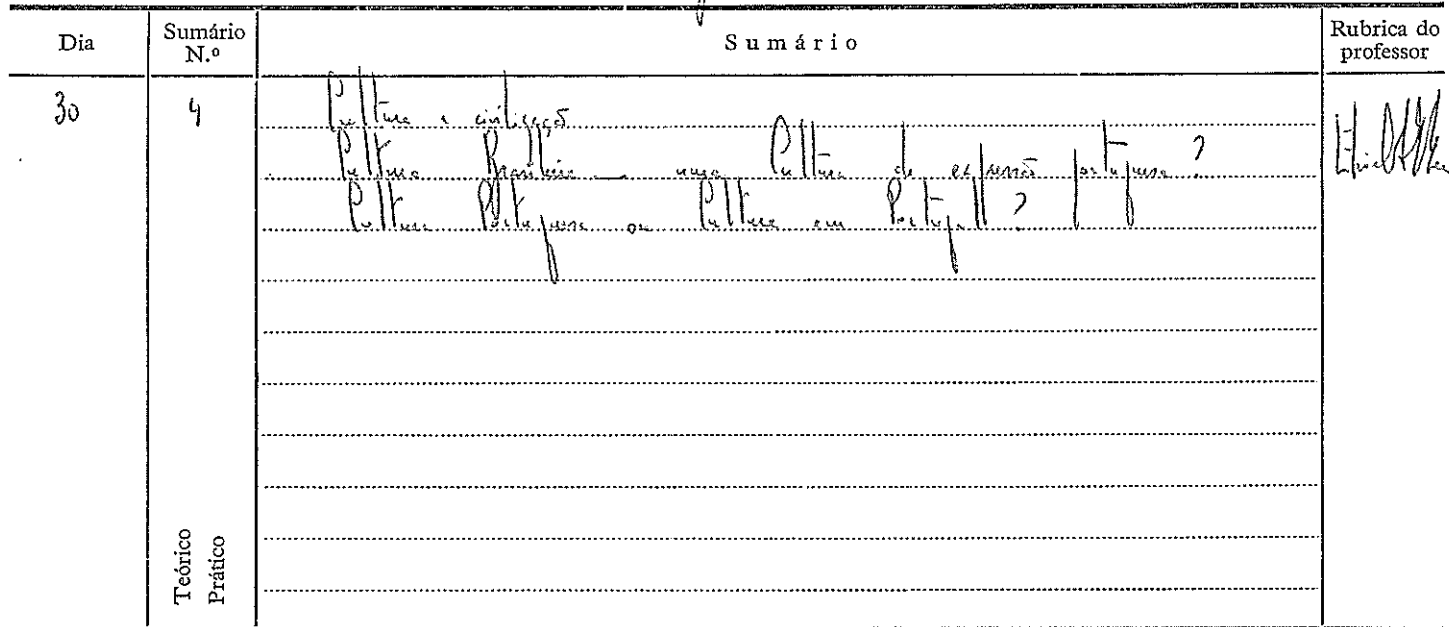 Dia Sumário N.º Sumário Rubrica do professor
30 4 Cultura e civilização
Cultura Brasileira — uma Cultura de expressão portuguesa?
Cultura Portuguesa ou Cultura em Portugal?
Teórico
Prático